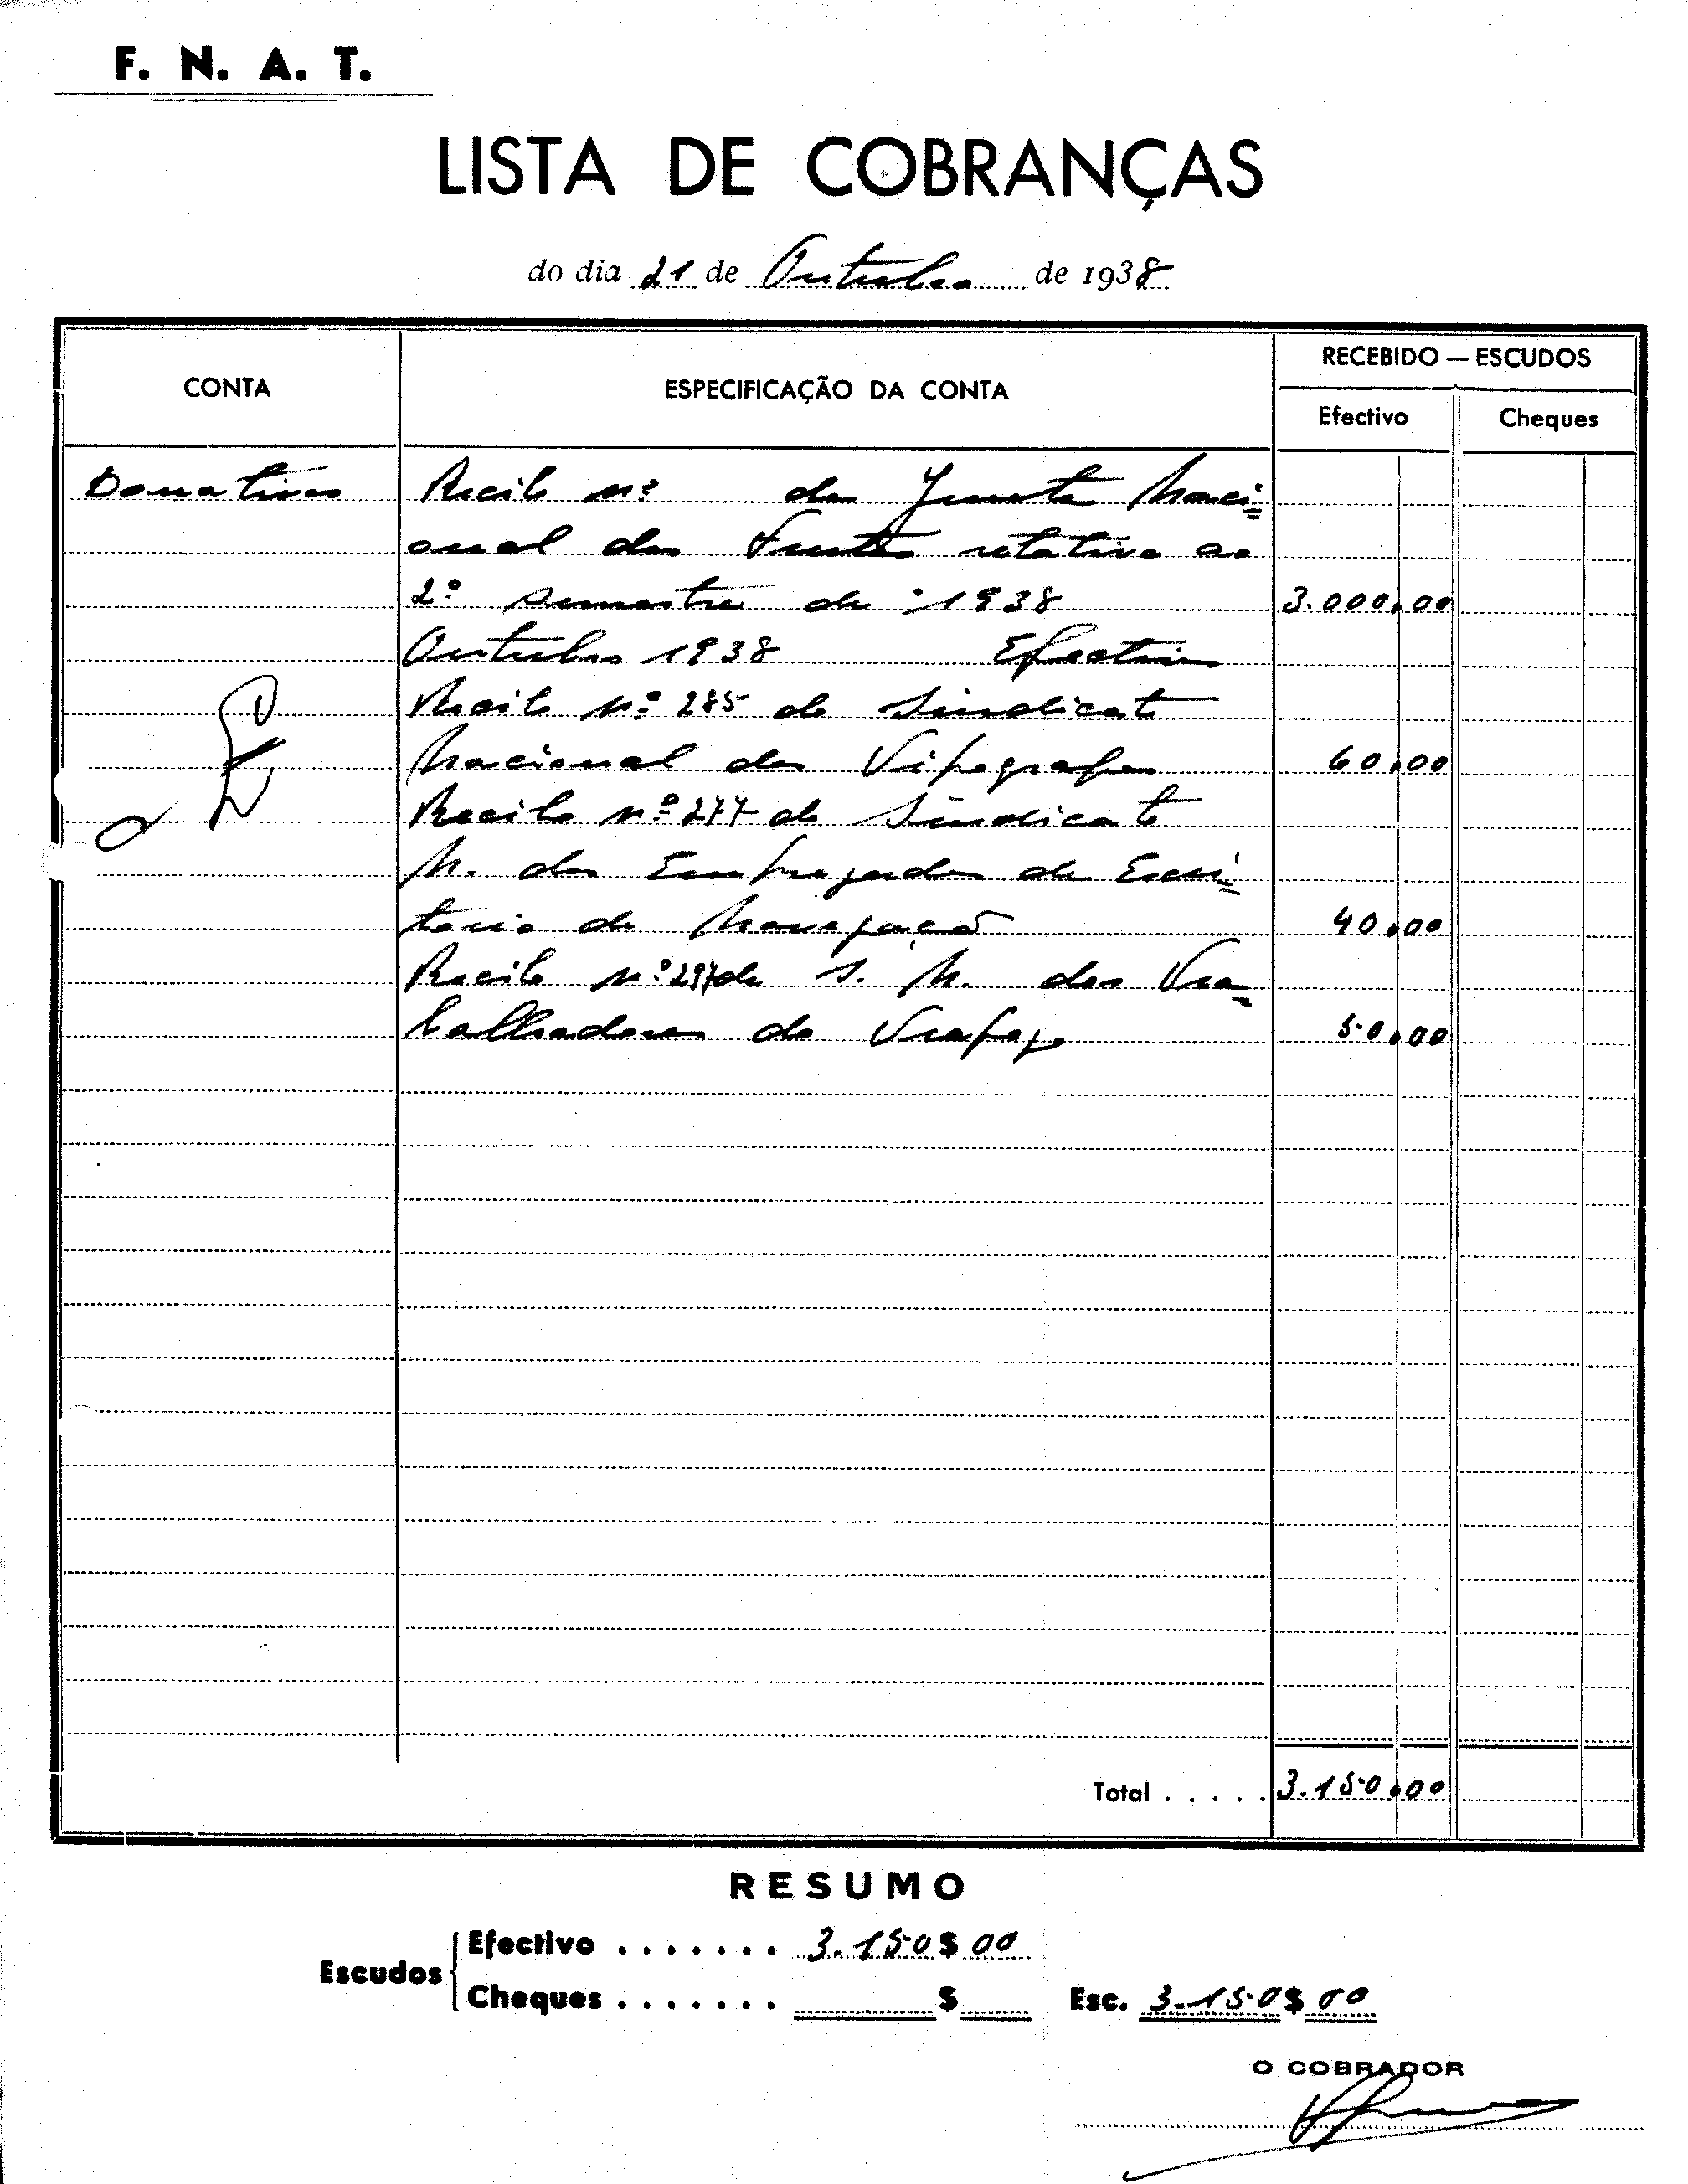 F. N. A. T.
LISTA DE COBRANÇAS
do dia 21 de Outubro de 1938
CONTA
ESPECIFICAÇÃO DA CONTA
RECEBIDO — ESCUDOS
Efectivo
Cheques
Donativos Recibo nº da Junta Naci-
onal das Frutas relativo ao
2º semestre de 1938 3.000,00
Outubro 1938 Efectivo
Recibo nº 285 do Sindicato
Nacional dos Tipografos 60,00
Recibo nº 277 do Sindicato
N. dos Empregados de Escri-
torio de Navegação 40,00
Recibo nº 297 do S. N. dos Tra-
balhadores do Trafego 50,00
Total . . . . . 3.150,00
RESUMO
Escudos
Efectivo . . . . . . . 3.150$00
Cheques . . . . . . . $
Esc. 3.150$00
O COBRADOR